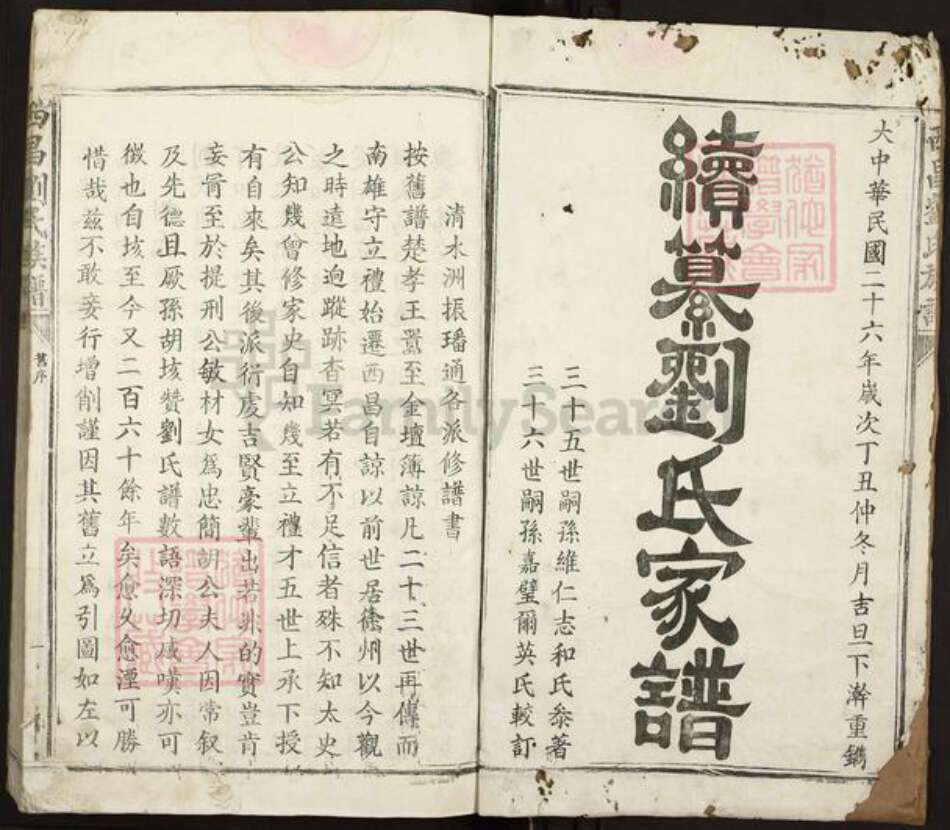 大中華民國二十六年歲次丁丑仲冬月吉旦下澣重鐫
續纂劉氏家譜
三十五世嗣孫維仁志和氏叅著
三十六世嗣孫嘉璧爾英氏較訂
清水洲振璠通各派修譜書
按舊譜楚孝王囂至金壇簿諒凡二十三世再傳而
南雄守立禮始遷西昌自諒以前世居徐州以今觀
之時遠地逈蹤跡杳冥若有不足信者殊不知太史
公知幾曾修家史自知幾至立禮才五世上承下授
有自來矣其後派衍虔吉賢豪輩出若非的實豈肯
妄冐至於提刑公敏材女爲忠簡胡公夫人因常叙
及先德且厥孫胡垓贊劉氏譜數語深切感嘆亦可
徵也自垓至今又二百六十餘年矣愈久愈湮可勝
惜哉兹不敢妄行增削謹因其舊立爲引圖如左以
西昌劉氏族譜
舊序
一
FamilySearch